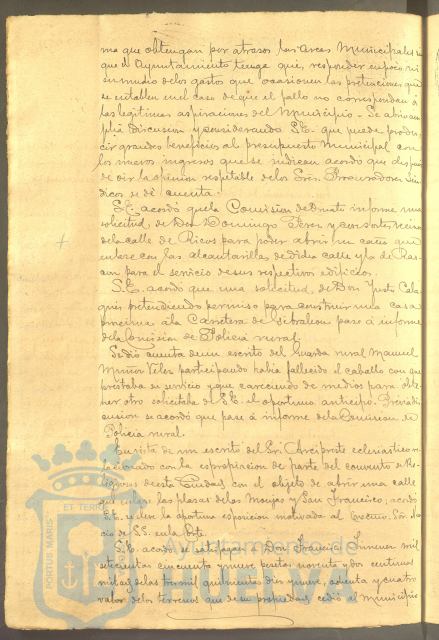 ma que obtengan por atrasos las Arcas Municipales sin
que el Ayuntamiento tenga que responder en poco ni
en mucho de los gastos que ocasionen las pretenciones que
se entablen en el caso de que el fallo no corresponda á
las legítimas aspiraciones del Municipio. Se abrió am
plia discusion y considerando S.E. que puede produ
cir grandes beneficios al presupuesto Municipal con
los nuevos ingresos que se indican acordó que despues
de oir la opinion respetable de los Sres. Procuradores Sin
dicos se dé cuenta.
S.E. acordó que la Comision de Ornato informe una
solicitud, de Don Domingo Perez y consortes vecinos
de la calle de Ricos para poder abrir un caño que
enlace con las alcantarillas de dicha calle y la de Ras-
con para el servicio de sus respectivos edificios.
S.E. acordó que una solicitud, de Don Justo Cala
pretendiendo permiso para construir una casa
proxima á la Carretera de Gibraleon pase á informe
de la Comision de Policia rural.
Se dió cuenta de un escrito del Guarda rural Manuel
Muñoz Velez participando habia fallecido el caballo con que
prestaba su servicio y que careciendo de medios para obte
ner otro solicitaba de S.E. el oportuno anticipo. Previa dis
cusion se acordó que pase á informe de la Comision de
Policia rural.
En vista de un escrito del Sr. Arcipreste eclesiastico re
lacionado con la espropiacion de parte del convento de Re-
ligiosas de esta Ciudad con el objeto de abrir una calle
que enlace las plazas de las Monjas y San Francisco, acordó
S.E. se eleve la oportuna esposicion motivada al Excmo. Sr.
de S.S. en la Corte.
S.E. acordó se satisfagan á Don Francisco Jimenez mil
setecientas cincuenta y nueve pesetas noventa y dos centimos
mitad de las tres mil quinientas diez y nueve, ochenta y cuatro
valor de los terrenos que de su propiedad cedió al Municipio
PORTUS MARIS
ET TERRÆ
Ayuntamiento de